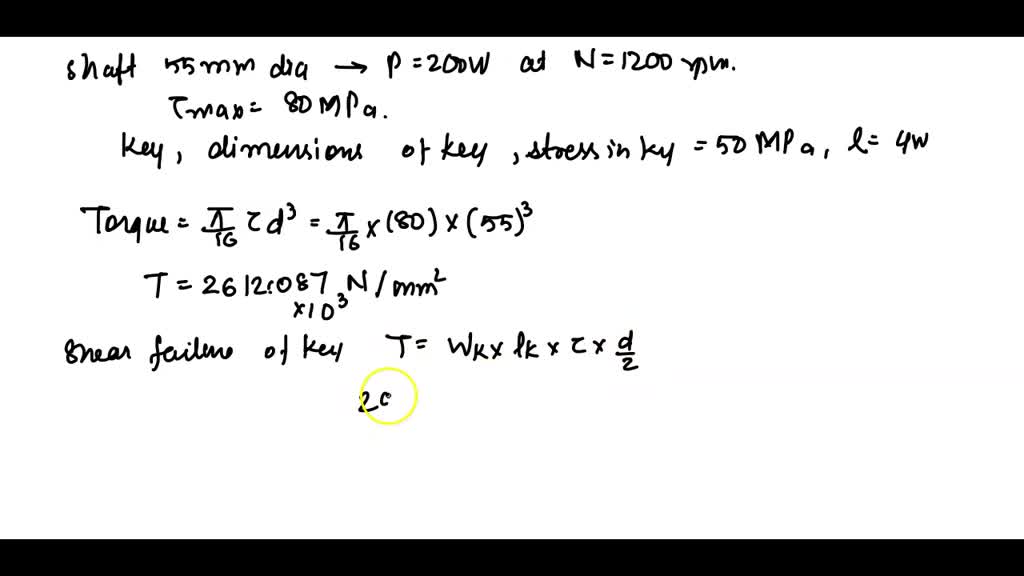 shaft 55mm dia → P = 200W at N = 1200 rpm.
τmax = 80 MPa.
key, dimensions of key, stress in ky = 50 MPa, l = 4w
Torque = π/16 τ d³ = π/16 × (80) × (55)³
T = 2612.087 N/mm²
×10³
shear failure of key T = Wk × lk × τ × d/2
20